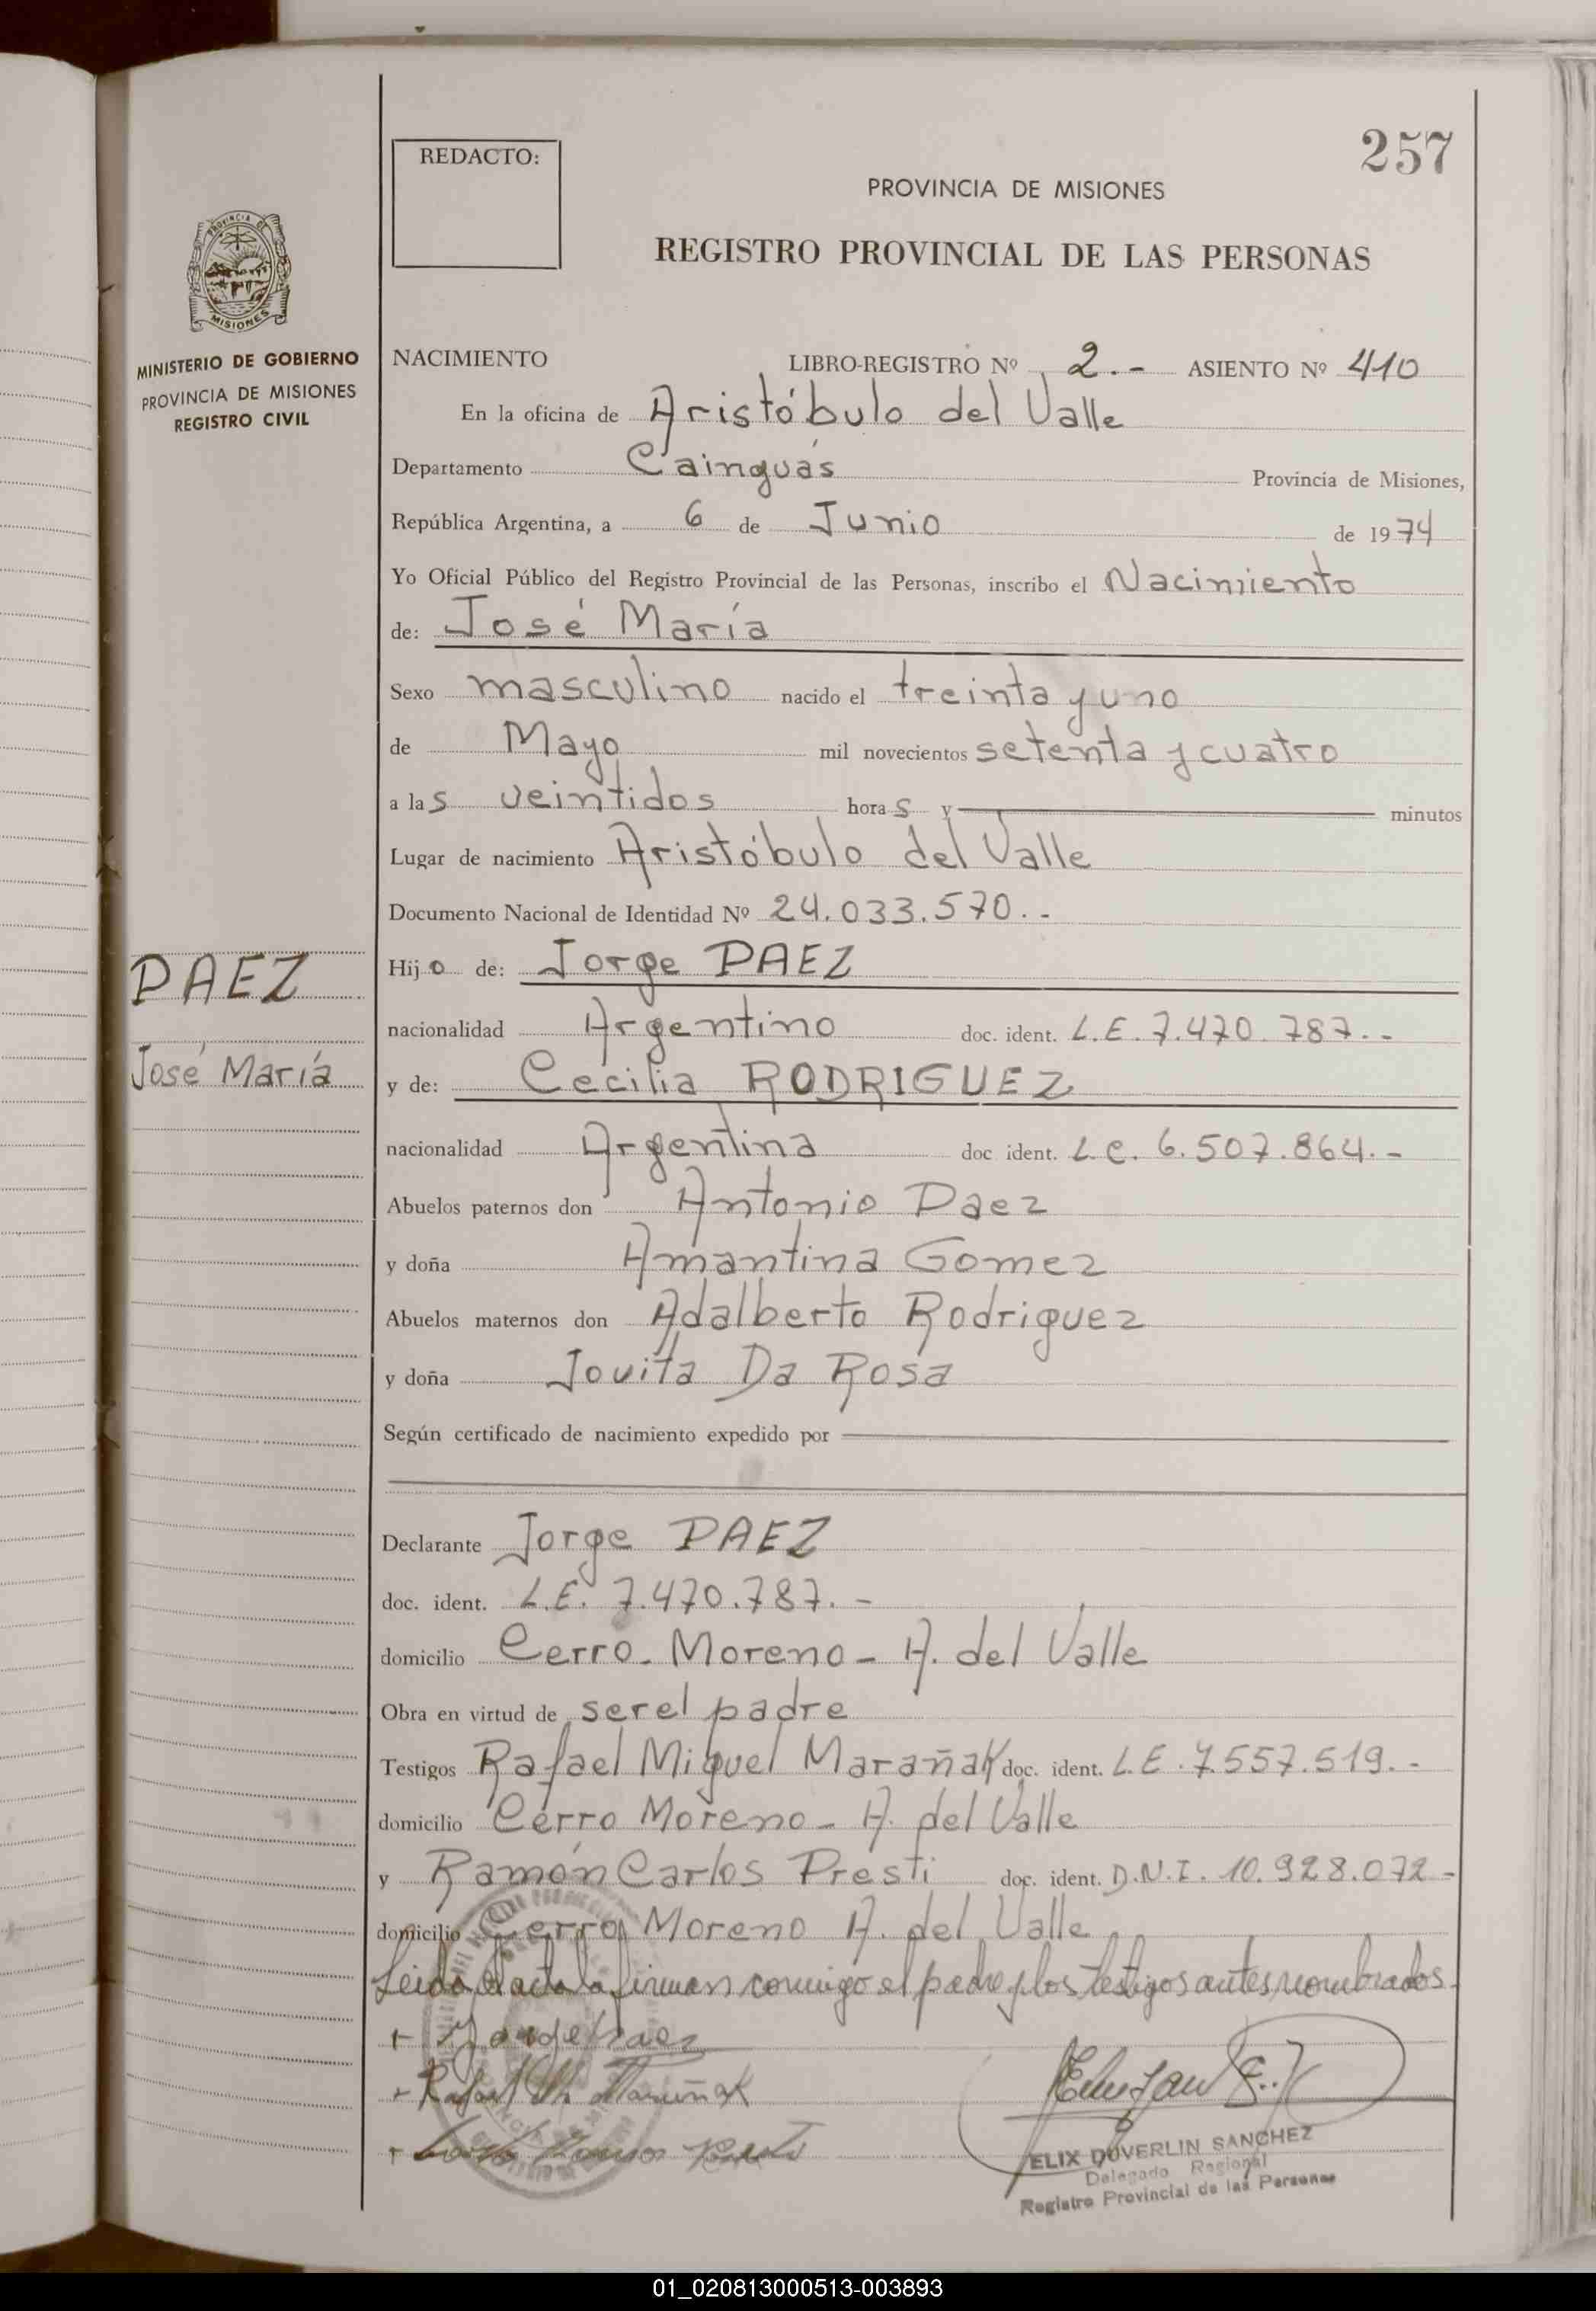 257
REDACTO:
PROVINCIA DE MISIONES
REGISTRO PROVINCIAL DE LAS PERSONAS
PROVINCIA DE
MISIONES
MINISTERIO DE GOBIERNO
PROVINCIA DE MISIONES
REGISTRO CIVIL
NACIMIENTO LIBRO-REGISTRO Nº 2.- ASIENTO Nº 410
En la oficina de Aristóbulo del Valle
Departamento Cainguás Provincia de Misiones,
República Argentina, a 6 de Junio de 1974
Yo Oficial Público del Registro Provincial de las Personas, inscribo el Nacimiento
de: José María
Sexo masculino nacido el treinta y uno
de Mayo mil novecientos setenta y cuatro
a las veintidos horas y minutos
Lugar de nacimiento Aristóbulo del Valle
Documento Nacional de Identidad Nº 24.033.570.-
PAEZ
José María
Hijo de: Jorge PAEZ
nacionalidad Argentino doc. ident. L.E. 7.470.787.-
y de: Cecilia RODRIGUEZ
nacionalidad Argentina doc ident. L.C. 6.507.864.-
Abuelos paternos don Antonio Paez
y doña Amantina Gomez
Abuelos maternos don Adalberto Rodriguez
y doña Jovita Da Rosa
Según certificado de nacimiento expedido por
Declarante Jorge PAEZ
doc. ident. L.E. 7.470.787.-
domicilio Cerro-Moreno-A. del Valle
Obra en virtud de ser el padre
Testigos Rafael Miguel Marañak doc. ident. L.E. 7.557.519.-
domicilio Cerro Moreno-A. del Valle
y Ramón Carlos Presti doc. ident. D.N.I. 10.928.072-
domicilio Cerro Moreno A. del Valle
Leida el acta la firman conmigo el padre y los testigos antes nombrados.
+ Jorge Paez
+ Rafael M. Maruñak
+
ELIX DUVERLIN SANCHEZ
Delegado Regional
Registro Provincial de las Personas
01_020813000513-003893